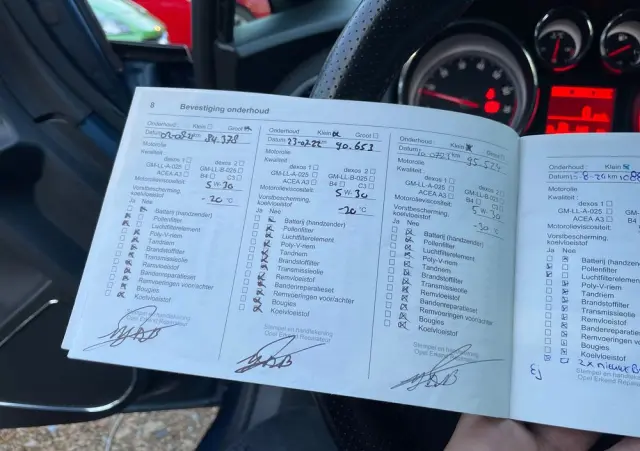 8 Bevestiging onderhoud
Onderhoud: Klein Groot
Datum km 84.378
Motorolie
Kwaliteit
dexos 1 dexos 2
GM-LL-A-025 GM-LL-B-025
ACEA A3 B4 C3
Motorolieviscositeit: 5W-30
Vorstbescherming,
koelvloeistof -20 °C
Ja Nee
Batterij (handzender)
Pollenfilter
Luchtfilterelement
Poly-V-riem
Tandriem
Brandstoffilter
Transmissieolie
Remvloeistof
Bandenreparatieset
Remvoeringen voor/achter
Bougies
Koelvloeistof
Stempel en handtekening
Opel Erkend Reparateur
Onderhoud: Klein Groot
Datum 23-07-22 km 90.653
Motorolie
Kwaliteit
dexos 1 dexos 2
GM-LL-A-025 GM-LL-B-025
ACEA A3 B4 C3
Motorolieviscositeit: 5W-30
Vorstbescherming,
koelvloeistof -20 °C
Ja Nee
Batterij (handzender)
Pollenfilter
Luchtfilterelement
Poly-V-riem
Tandriem
Brandstoffilter
Transmissieolie
Remvloeistof
Bandenreparatieset
Remvoeringen voor/achter
Bougies
Koelvloeistof
Stempel en handtekening
Opel Erkend Reparateur
Onderhoud: Klein Groot
Datum km 95-524
Motorolie
Kwaliteit
dexos 1 dexos 2
GM-LL-A-025 GM-LL-B-025
ACEA A3 B4 C3
Motorolieviscositeit: 5W-30
Vorstbescherming,
koelvloeistof -30 °C
Ja Nee
Batterij (handzender)
Pollenfilter
Luchtfilterelement
Poly-V-riem
Tandriem
Brandstoffilter
Transmissieolie
Remvloeistof
Bandenreparatieset
Remvoeringen voor/achter
Bougies
Koelvloeistof
Stempel en handtekening
Opel Erkend Reparateur
Onderhoud: Klein
Datum km
Motorolie
Kwaliteit
dexos 1
GM-LL-A-025 GM-LL
ACEA A3 B4
Motorolieviscositeit:
Vorstbescherming,
koelvloeistof
Ja Nee
Batterij (handzender)
Pollenfilter
Luchtfilterelement
Poly-V-riem
Tandriem
Brandstoffilter
Transmissieolie
Remvloeistof
Bandenreparat
Remvoeringen
Bougies
Koelvloeistof
2x nieuwe
Stempel en handteke
Opel Erkend Repara